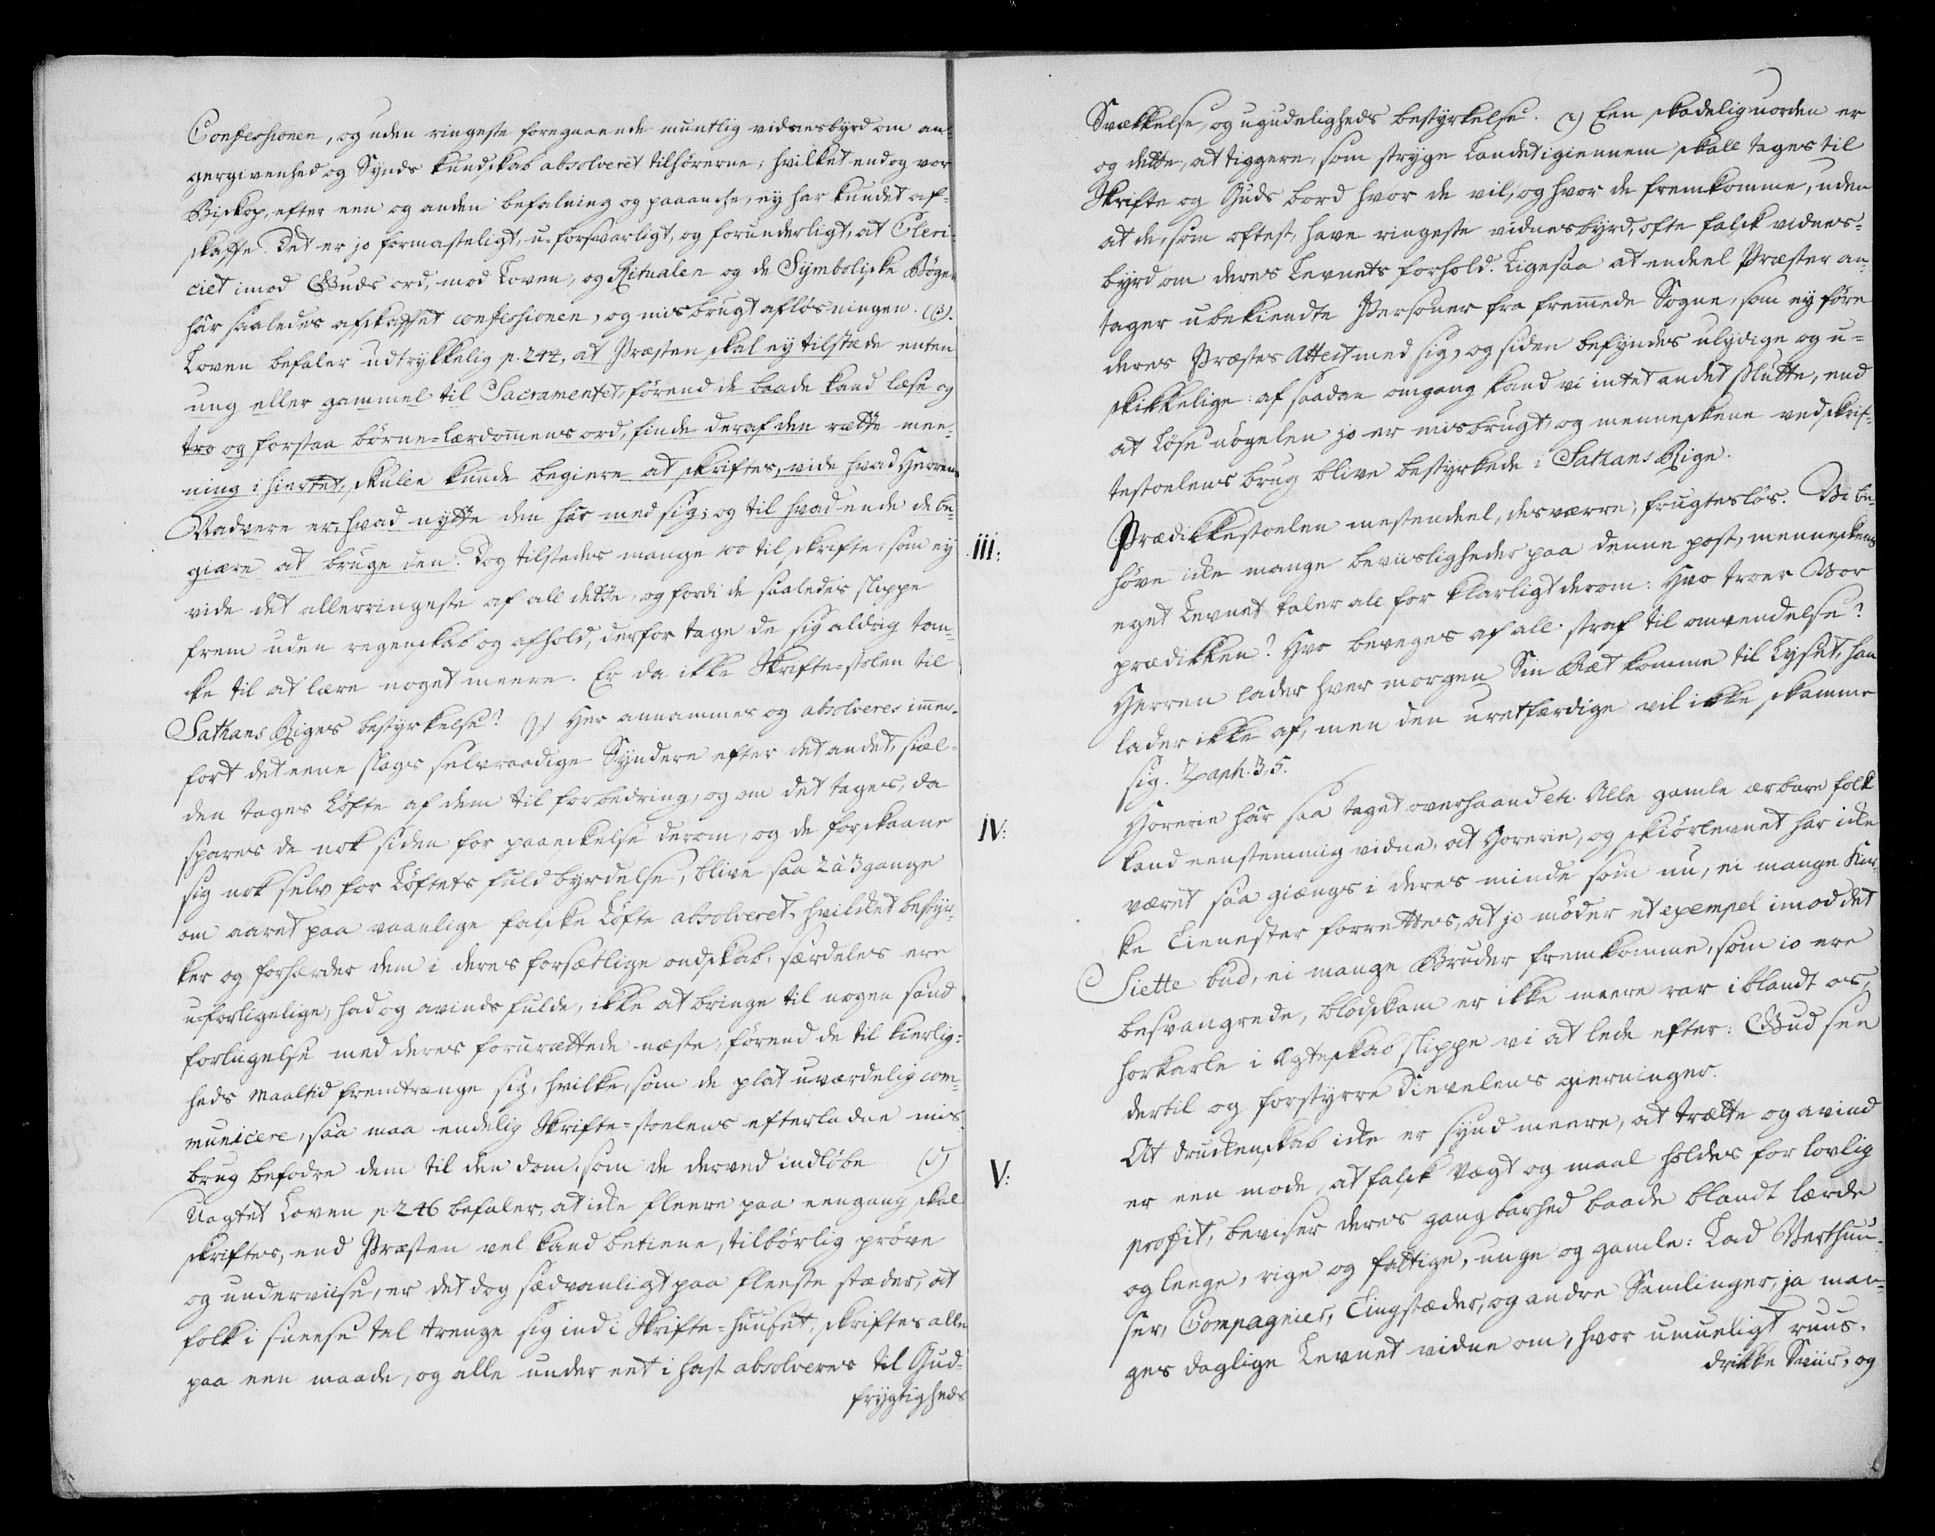 Confessionen, og uden ringeste foregaaende mundtlig vidnesbyrd om an-
gergivenhed og Synds kundskab absolveret tilhörerne; hvilket endog vor
Biskop, efter een og anden befalning og paaanche, ey har kundet af-
skaffe. Det er jo formasteligt, u-forsvarligt, og forunderligt, at Cleri-
ciet imod Guds ord, mod Loven, og Ritualen og de Symboliske Böger
här saaledes afskaffet confessionen, og misbrugt aflösningen. (β).
Loven befaler udtrykkelig p. 244, at Præsten skal ey tilstæde enten
ung eller gammel til Sacramentet, förend de baade kand læse og
tro og forstaa börne-lærdommens ord, finde deraf den rætte mee-
ning i hiertet, skulle kunde begiere at skriftes, vide hvad Herrens
Nadvere er, hvad nytte den här med sig; og til hvad ende de be-
giære at bruge den. Dog tilstedes mange 100 til skrifte, som ey
vide det allerringeste af all dette, og fordi de saaledes slippe
frem uden regenskab og afhold, derfor tage de sig aldrig tan-
cke til at lære noget meere. Er da ikke Skrifte-stolen til
Sathans Riges bestyrkelse? (γ) Her annammes og absolveres immer-
fort det eene slags selvraadige Syndere efter det andet, siæl-
den tages Löfte af dem til forbedring, og om det tages, da
spares de nok siden for paaeskelse derom, og de forskaane
sig nok selv for Löftets fuldbyrdelse, blive saa 2 à 3 gange
om aaret paa vaanlige falske Löfte absolveret, hvilcket bestyr-
ker og forhærder dem i deres forsætlige ondskab, særdeles ere
uforligelige, had og avinds fulde, ikke at bringe til nogen sand
forligelse med deres forurættede næste, förend de til kierlig-
heds Maaltid fremtrænge sig, hvilke, som de plat uværdelig com-
municere, saa maa endelig Skrifte-stoelens efterladne mis-
brug befodre dem til den dom, som de derved indlöbe (δ)
Uagtet Loven p. 246 befaler, at icke fleere paa eengang skal
skriftes, end Præsten vel kand betiene, tilbörlig pröve
og underviise, er det dog sædvanligt paa fleeste stæder, at
folk i sneese tal trenge sig ind i Skrifte-huuset, skriftes alle
paa een maade, og alle under eet i hast absolveres til Gud-
frygtigheds
Svækkelse, og ugudeligheds bestyrkelse. (ε) Een skadelig uorden er
og dette, at tiggere, som stryge Landet igiennem skall tages til
Skrifte og Guds bord hvor de vil, og hvor de fremkomme, uden
at de, som oftest, have ringeste vidnesbyrd, ofte falsk vidnes-
byrd om deres Levnets forhold. Ligesaa at endeel Præster an-
tager ubekiendte Personer fra fremmede Sogne, som ey före
deres Præstes Attest med sig, og siden befyndes ulydige og u-
skikkelige: af saadan omgang kand vi intet andet slutte, end
at Löse nögelen jo er misbrugt, og menneskene ved skrif-
testoelens brug blive bestyrkede i Sathans Rige.
iii: Prædikkestoelen mestendeel, desværre, frugteslös. Vi be-
höve icke mange beviisligheder paa denne post, menneskens
eget Levnet taler all for klarligt derom: Hvo troer Vor
prædikken? Hvo beveges af all straf til omvendelse?
Herren lader hver morgen Sin Ræt komme til Lyset, han
lader ikke af, men den uretfærdige vil ikke skamme
sig. Zaph. 3, 5.
IV: Horerie här saa taget overhaand etc. Alle gamle ærbare folk
kand eenstemmig vidne, at Horerie, og skiörlevnet har icke
været saa giængs i deres minde som nu, ei mange Kir-
ke Tienester forrettes, at jo möder et exempel imod det
Siette bud, ei mange Bruder fremkomme, som jo ere
besvangrede, blodskam er ikke meere rar iblandt os,
horkarle i Egteskab slippe vi at lede efter: Gud see
dertil og forstyrre Dievelens gierninger.
V: At druckenskab icke er synd meere, at trætte og avind
er een mode, at falsk Vægt og maal holdes for lovlig
profit, beviser deres gangbarhed baade blandt lærde
og leege, rige og fattige, unge og gamle: Lad Verthuu-
ser, Compagnier, Tingstæder, og andre Samlinger, ja man-
ges daglige Levnet vidne om, hvor umueligt ruus.
drikke Sviir, og